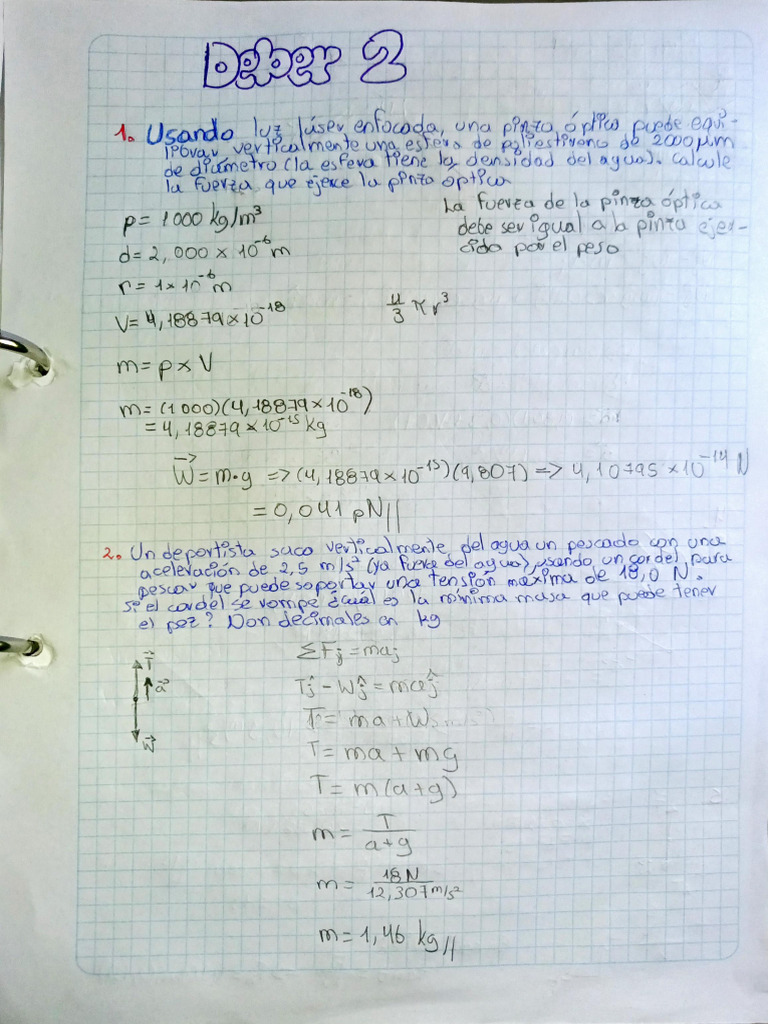 Deber 2
1. Usando luz láser enfocada, una pinza óptica puede equi-
librar verticalmente una esfera de poliestireno de 2000 µm
de diámetro (la esfera tiene la densidad del agua). Calcule
la fuerza que ejerce la pinza óptica
La fuerza de la pinza óptica
debe ser igual a la pinza ejer-
cido por el peso
ρ = 1000 kg/m³
d = 2,000 × 10⁻⁶ m
r = 1 × 10⁻⁶ m
V = 4,18879 × 10⁻¹⁸
4/3 π r³
m = ρ × V
m = (1000)(4,18879 × 10⁻¹⁸)
= 4,18879 × 10⁻¹⁵ kg
W⃗ = m·g => (4,18879 × 10⁻¹⁵)(9,807) => 4,10795 × 10⁻¹⁴ N
= 0,041 pN//
2. Un deportista saca verticalmente del agua un pescado con una
aceleración de 2,5 m/s² (ya fuera del agua), usando un cordel para
pescar que puede soportar una tensión máxima de 18,0 N.
Si el cordel se rompe ¿cuál es la mínima masa que puede tener
el pez? Don decimales en kg
T⃗
a⃗
W⃗
ΣFj = maj
Tĵ - Wĵ = maĵ
T = ma + W
T = ma + mg
T = m(a+g)
m = T / a+g
m = 18N / 12,307 m/s²
m = 1,46 kg//